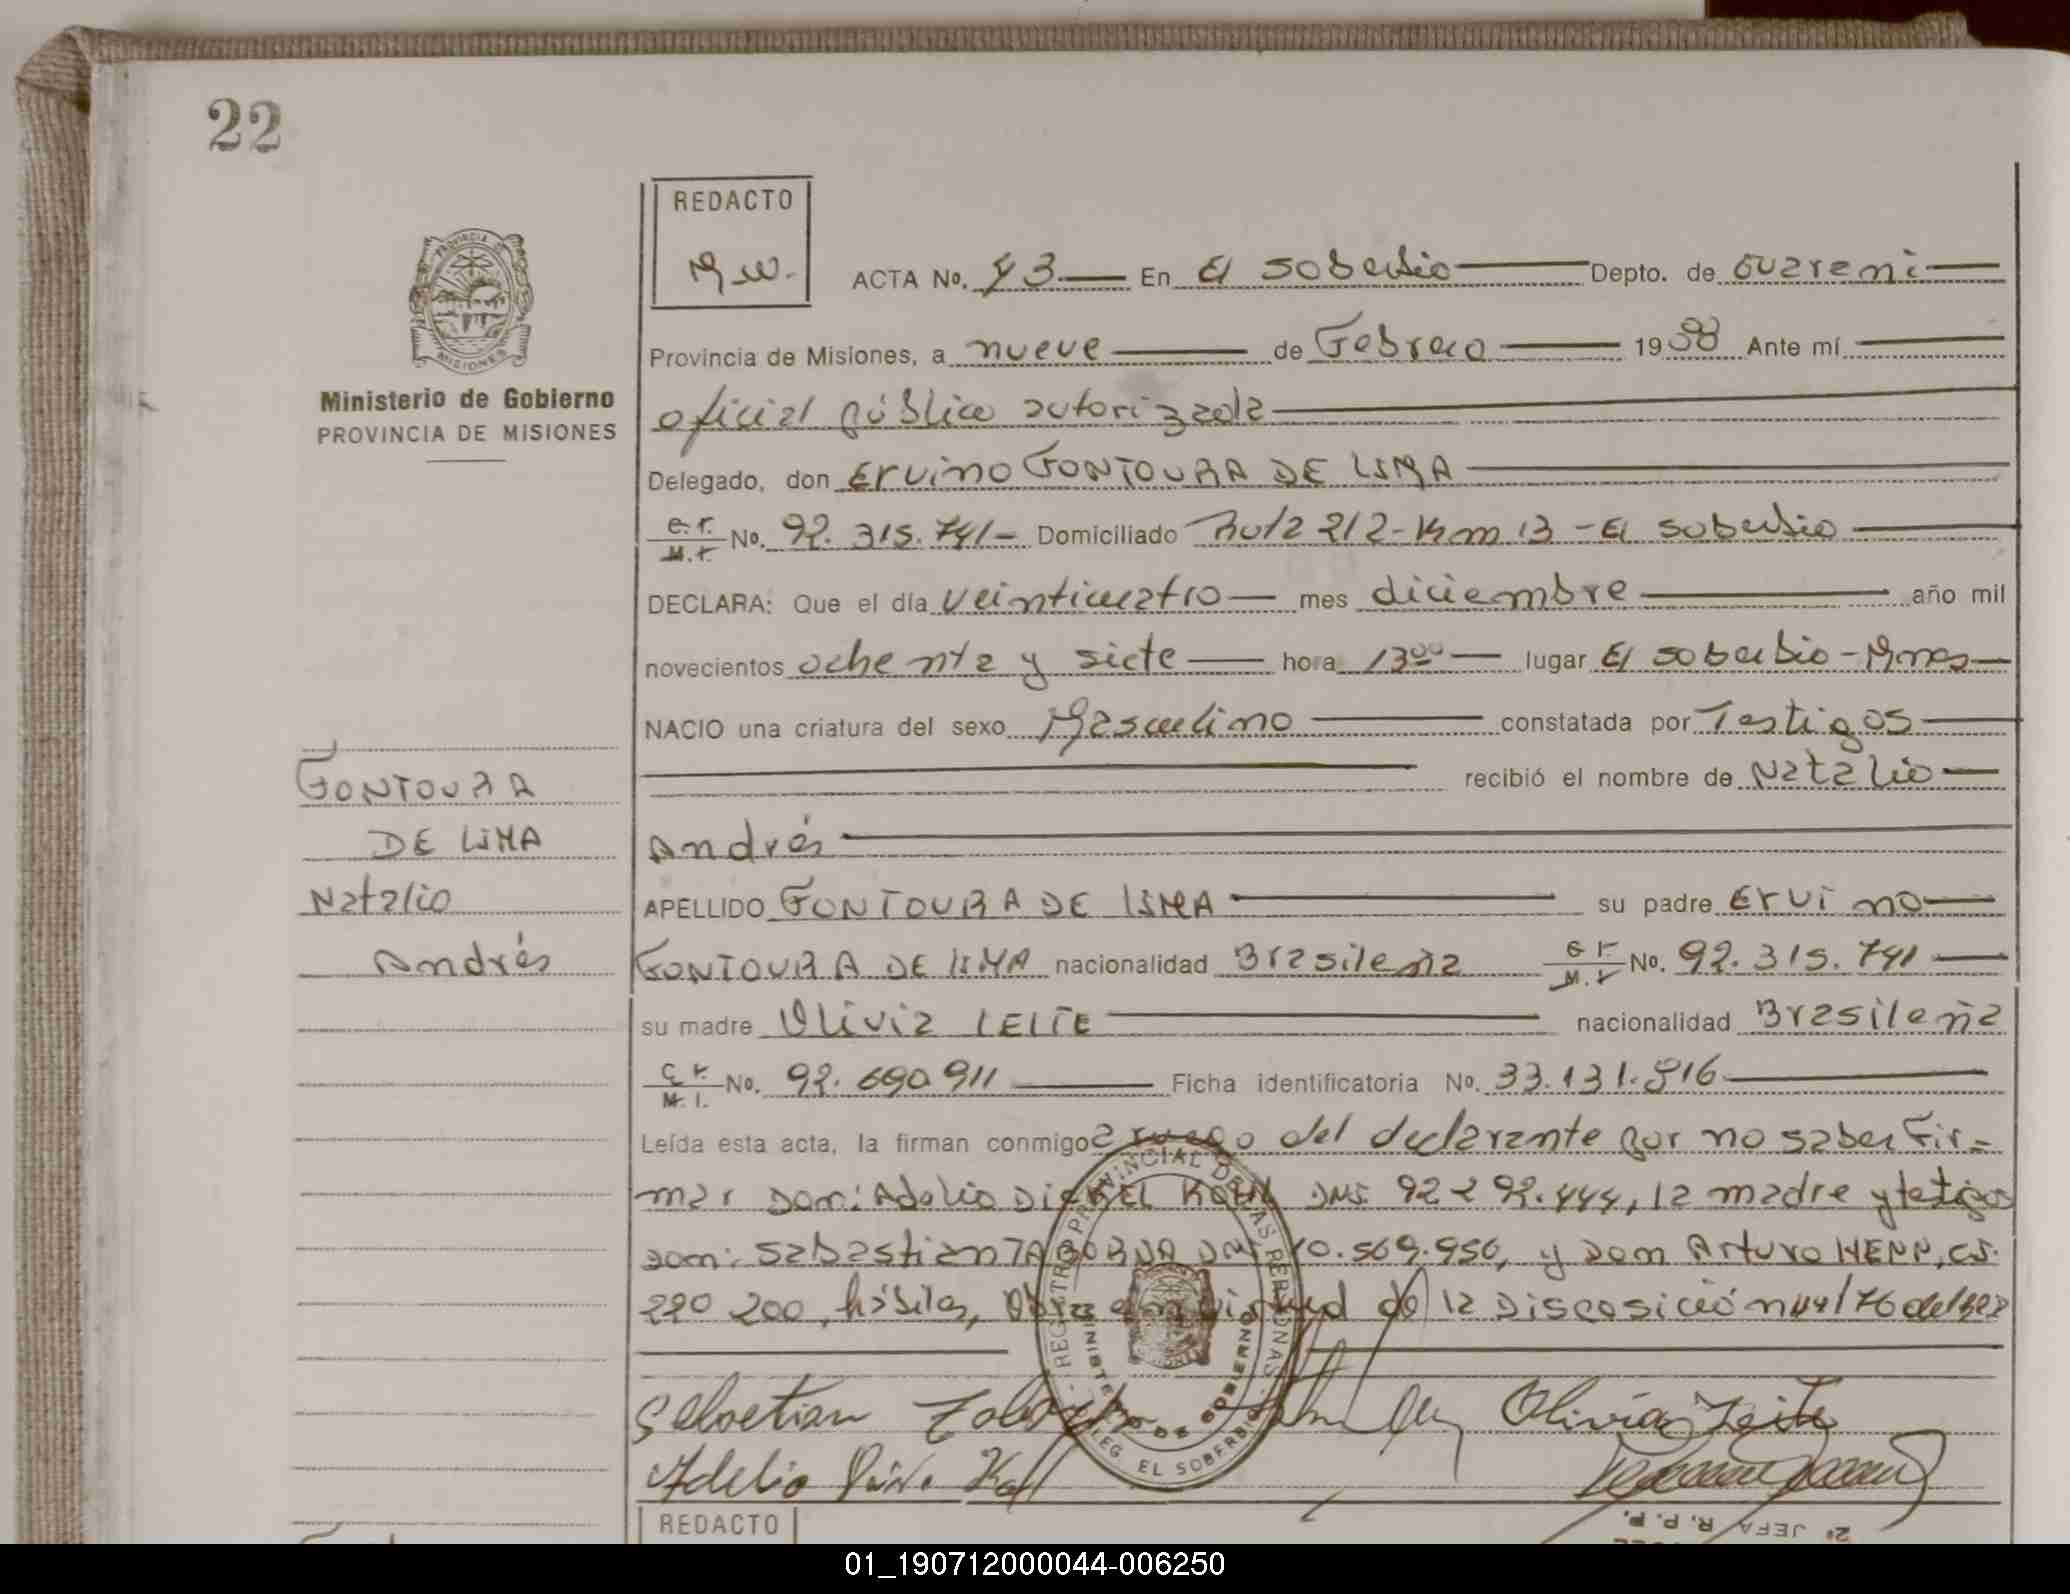 22
REDACTO
M.W.
ACTA No. 43 En El Soberbio Depto. de Guarani
Provincia de Misiones, a nueve de Febrero 1988 Ante mí
oficial público autorizada
Delegado, don Ervino FONTOURA DE LIMA
C.I. M.I. No. 92.315.741 - Domiciliado Ruta 212 - Km 13 - El Soberbio
DECLARA: Que el día veinticuatro mes diciembre año mil
novecientos ochenta y siete hora 13⁰⁰ lugar El Soberbio - Mnes
NACIO una criatura del sexo Masculino constatada por Testigos
recibió el nombre de Natalio
Andrés
APELLIDO FONTOURA DE LIMA su padre Ervino
FONTOURA DE LIMA nacionalidad Brasileña C.I. M.I. No. 92.315.741
su madre Olivia LEITE nacionalidad Brasileña
C.I. M.I. No. 92.690.911 Ficha identificatoria No. 33.131.916
Leída esta acta, la firman conmigo a ruego del declarante por no saber fir=
mar Don: Adelio DICKEL KOHL DNI. 92292.444, la madre y testigos
Don: Sebastian TABORDA DNI 10.569.956, y Don Arturo HENN, C.I.
220200, hábiles, Obra en virtud de la Disposición n 44/76 del
Ministerio de Gobierno
PROVINCIA DE MISIONES
FONTOURA
DE LIMA
Natalio
Andrés
PROVINCIA DE MISIONES
REGISTRO PROVINCIAL DE LAS PERSONAS
MINISTERIO DE GOBIERNO
DELEG. EL SOBERBIO
Sebastian Taborda
Olivia Leite
Adelio Kohl
2º JEFA R. P. P.
REDACTO
01_190712000044-006250